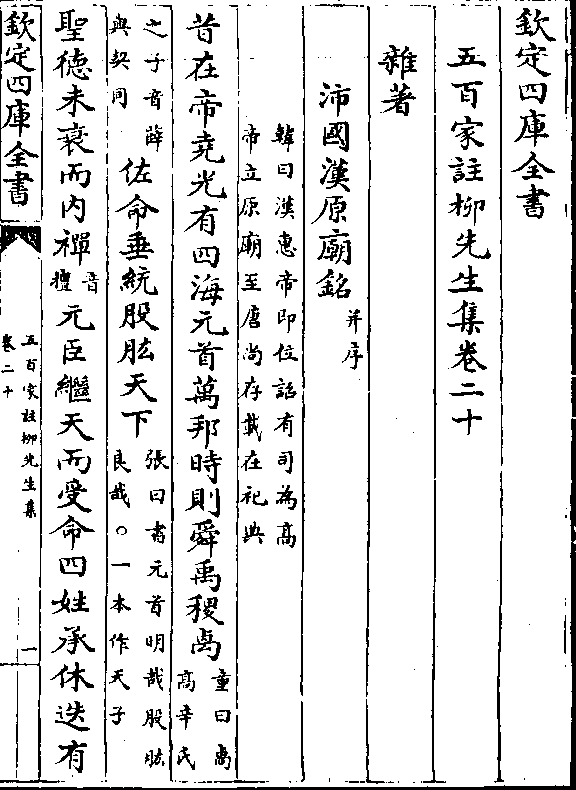 欽定四庫全書
五百家註柳先生集卷二十
雜著
沛國漢原廟銘并序
韓曰漢惠帝即位詔有司為髙
帝立原廟至唐尚存載在祀典
昔在帝堯光有四海元首萬邦時則舜禹稷卨童曰卨髙辛氏
之子音薛與契同佐命垂統股肱天下張曰書元首明哉股肱良哉○一本作天子
聖德未衰而内禪音擅元臣繼天而受命四姓承休迭有
欽定四庫全書
五百家註柳先生集
卷二十
一